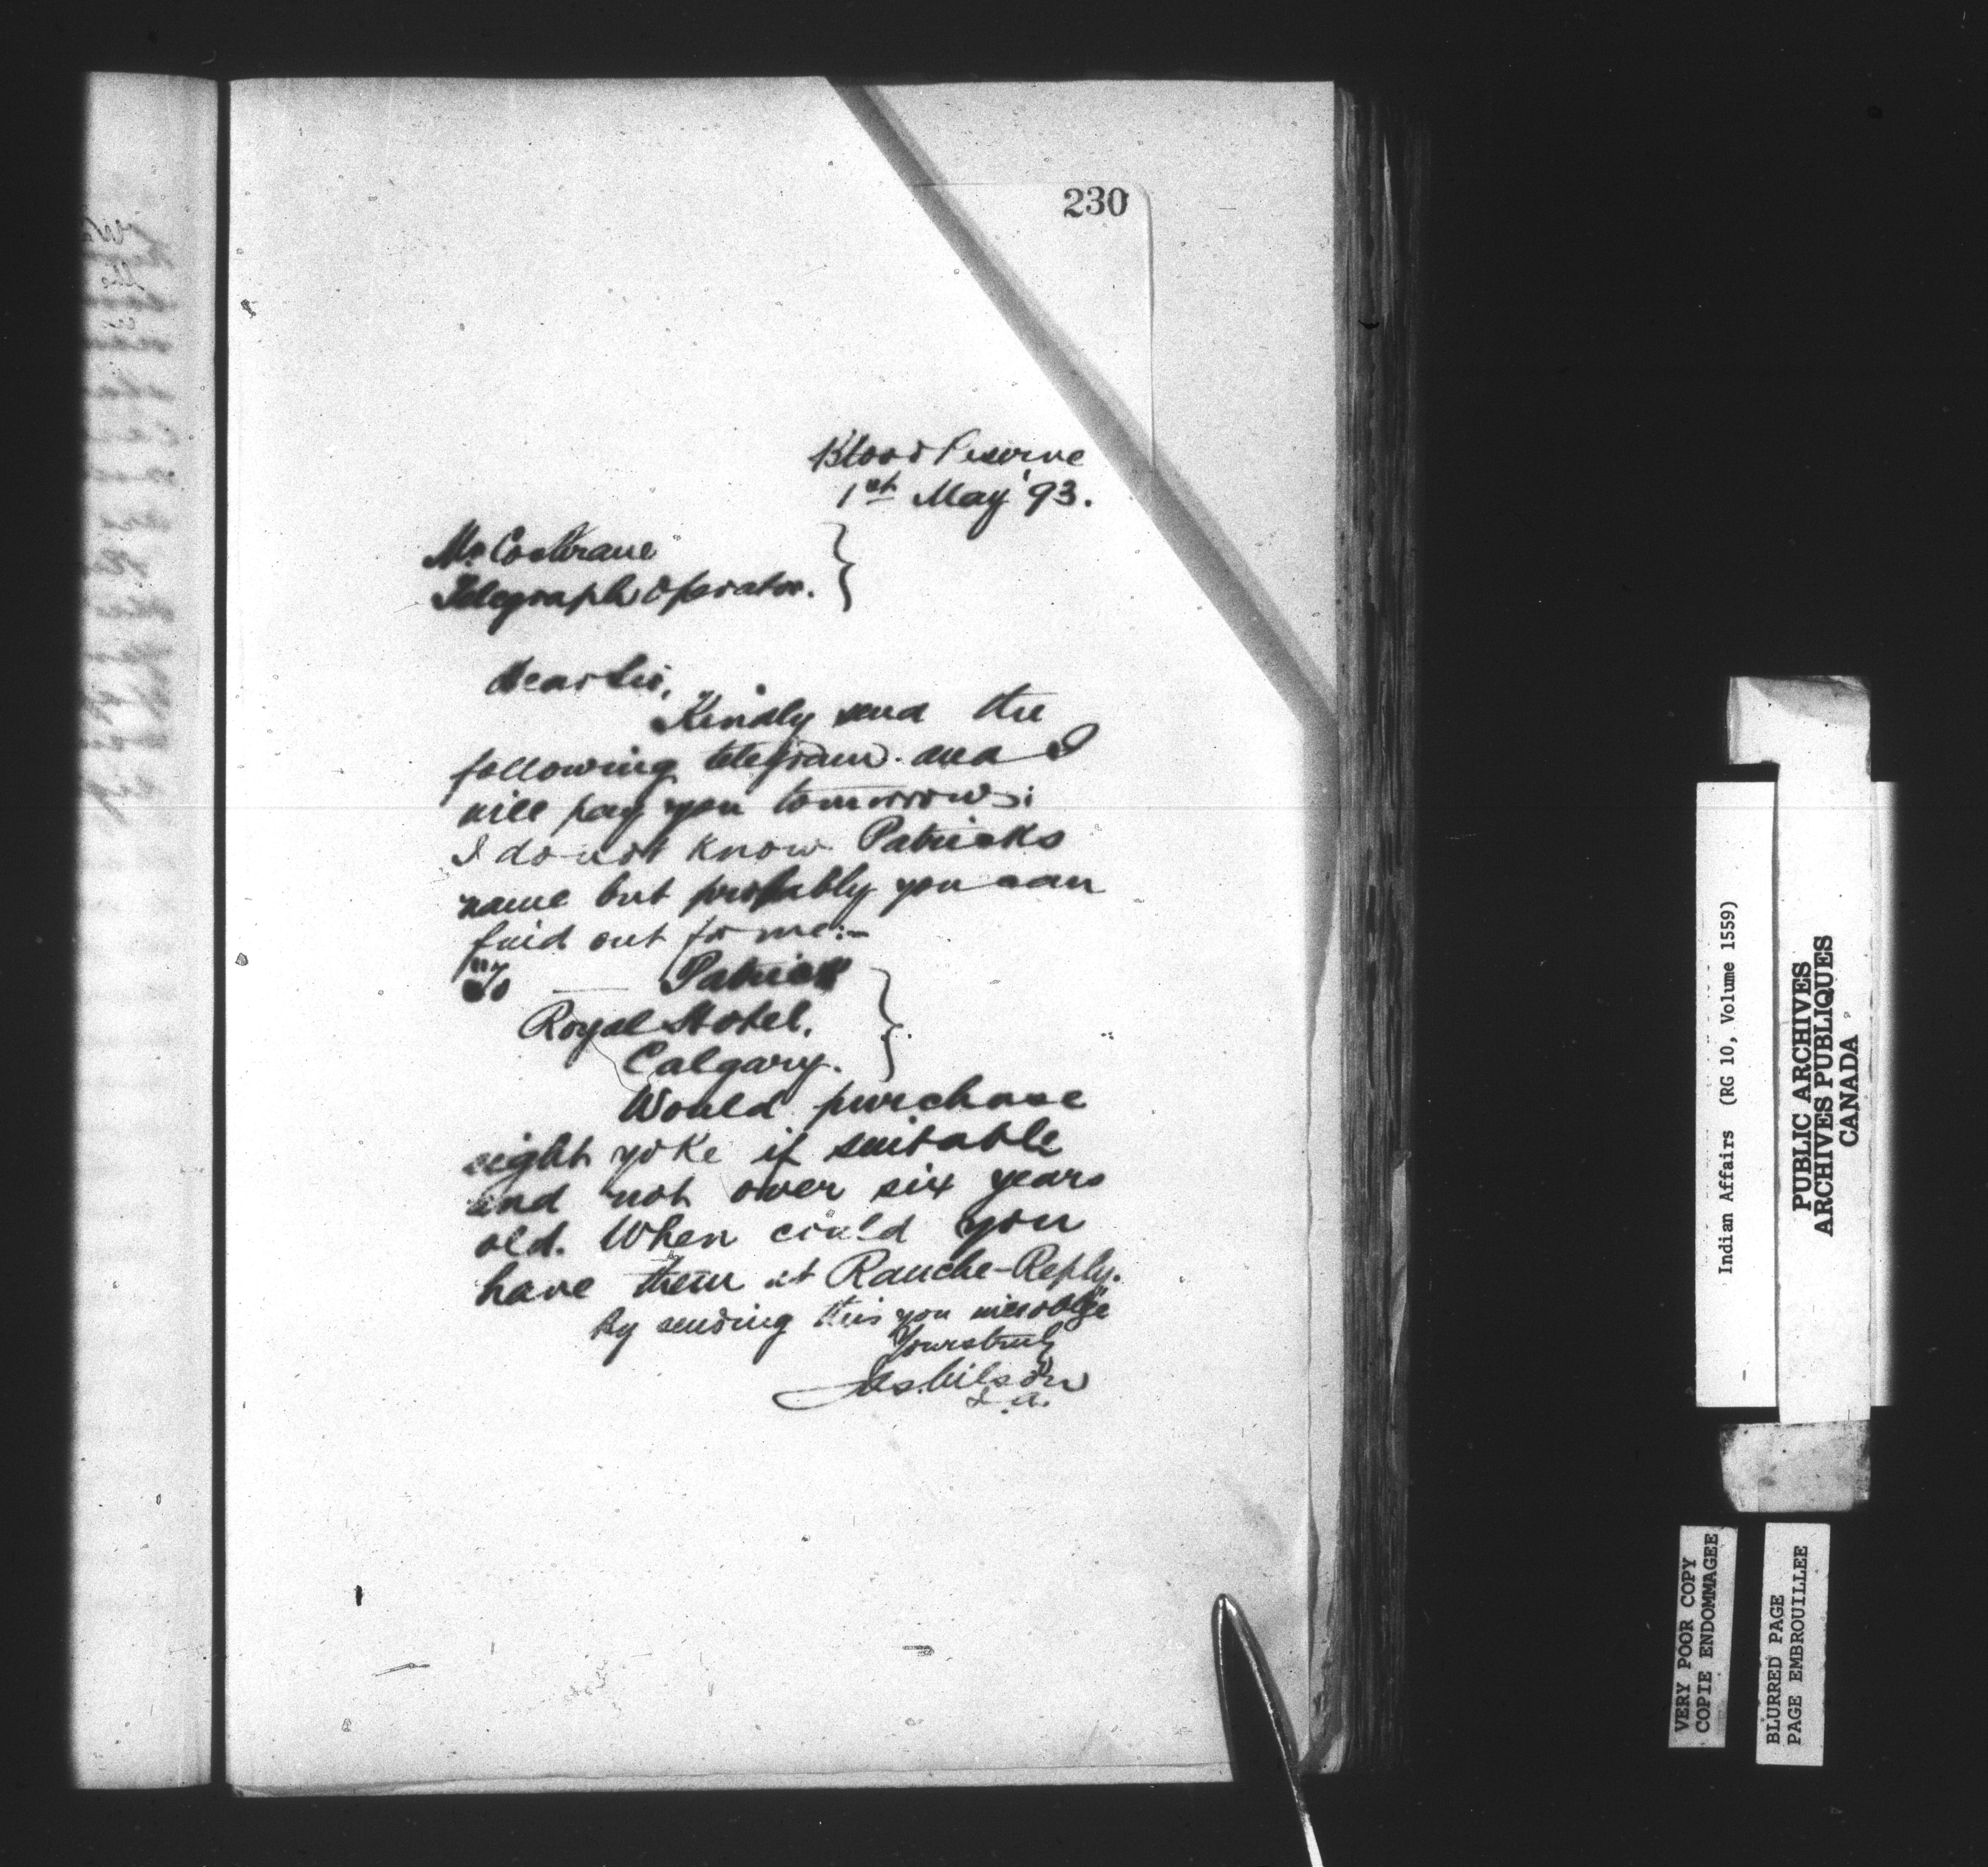 230
Blood Reserve
1st May '93.
Mr Cochrane
Telegraph Operator.
Dear Sir,
Kindly send the
following telegram and I
will pay you tomorrow:
I do not know Patricks
name but probably you can
find out for me:-
"To —— Patrick
Royal Hotel,
Calgary.
Would purchase
eight yoke if suitable
and not over six years
old. When could you
have them at Ranche-Reply."
By sending this you will oblige
Yours truly
Jas. Wilson
I. A.
Indian Affairs (RG 10, Volume 1559)
PUBLIC ARCHIVES
ARCHIVES PUBLIQUES
CANADA
VERY POOR COPY
COPIE ENDOMMAGEE
BLURRED PAGE
PAGE EMBROUILLEE